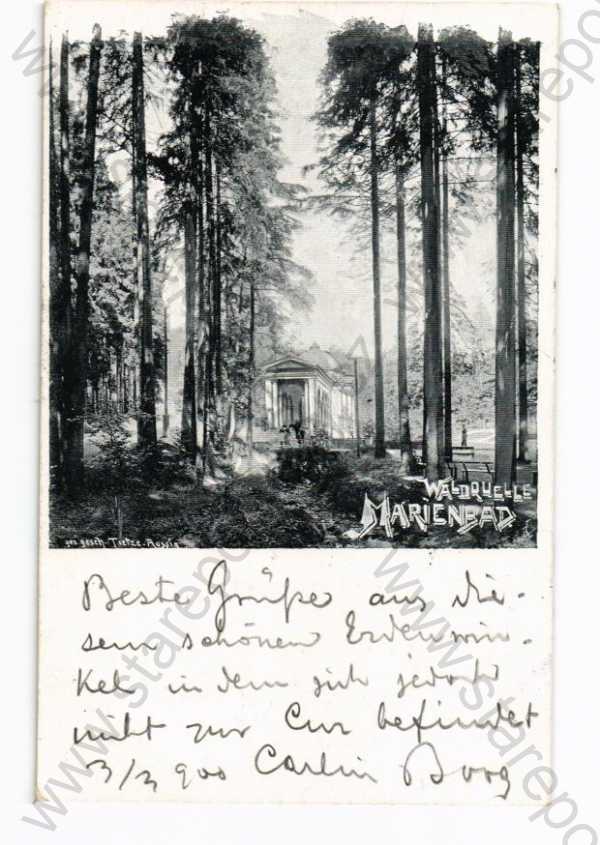 WALDQUELLE
MARIENBAD
ges. gesch. Tietze-Rossin
Beste Grüße aus die-
sem schönen Erdenwin-
kel in dem sich jedoch
nicht zur Cur befindet
3/3 900 Carlin Borg
www.starepo